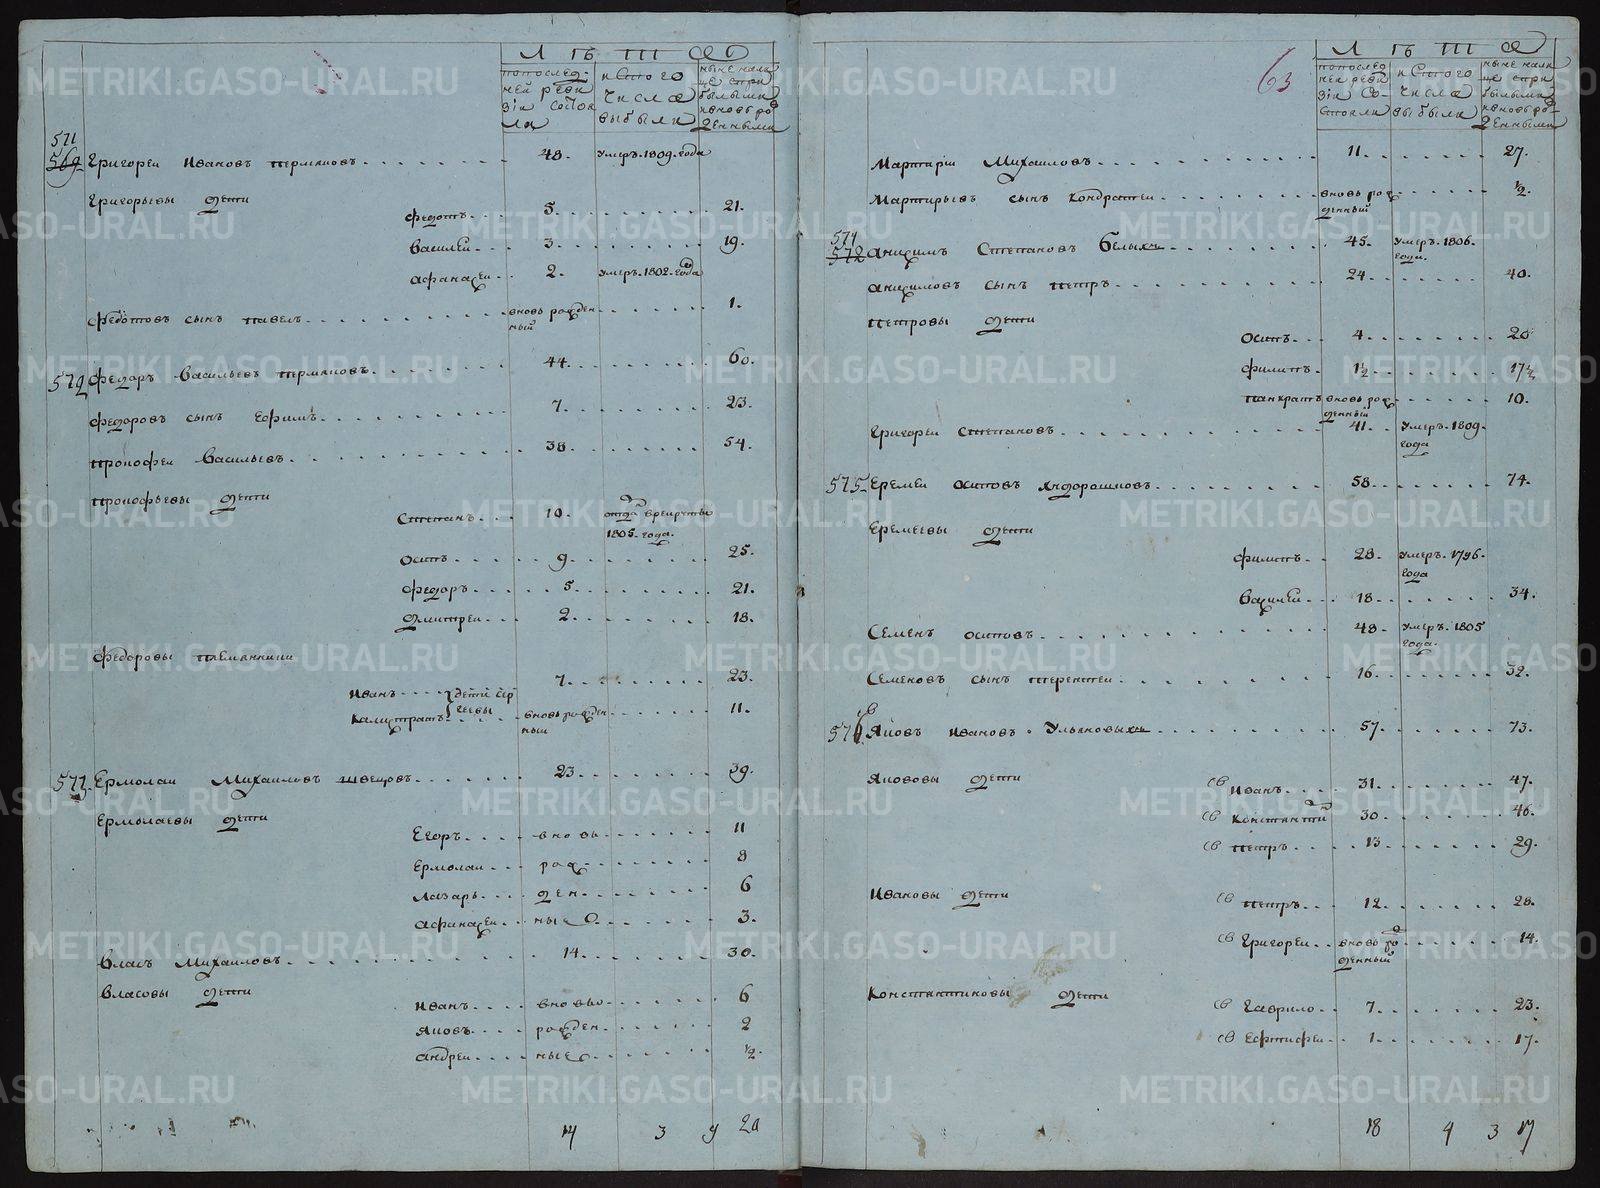 Л ѣ т а
по послед
ней реви
зіи состоя
ла
и стого
числа
выбыли
ныне нали
це спри
былыми
и вновь ро
жденными
571
569 Григореи Ивановъ пермяковъ 48. умеръ. 1809. года
Григорьевы дети
Федотъ 5. 21.
Василеи 3. 19.
Афанасеи 2. умеръ. 1802. года
Федотовъ сынъ павелъ вновь рожден
ный 1.
572 Федоръ Васильевъ пермяковъ 44. 60.
Федоровъ сынъ Ефимъ 7. 23.
прокофеи Васильевъ 38 54.
прокофьевы дети
Степанъ 10. отдан врекруты
1805. года.
Осипъ 9. 25.
Федоръ 5. 21.
дмитреи 2. 18.
Федоровы племянники
Иванъ дети Сер
геевы 7. 23.
Калистратъ вновь рожден
ныи 11.
573. Ермолаи Михаиловъ швецовъ 23. 39.
Ермолаевы дети
Егоръ вновь 11
Ермолаи рож 8
Лазарь ден 6
Афанасеи ные 3.
Власъ Михаиловъ 14. 30.
Власовы дети
Иванъ вновь 6
Яковъ рожден 2
Андреи ные ½.
14 3 9 20
63
Л ѣ т а
по послед
ней реви
зіи со
стояли
и стого
числа
выбыли
ныне нали
це спри
былыми
и вновь ро
жденными
Мартирии Михаиловъ 11. 27.
Мартирьевъ сынъ Кондратеи вновь рож
денный ½.
574
572 Анисимъ Степановъ Белыхъ 45. умеръ. 1806.
года.
Анисимовъ сынъ петръ 24. 40.
петровы дети
Осипъ 4. 20
Филипъ 1½ 17½
панкратъ вновь рож
денный 10.
Григореи Степановъ 41. умеръ. 1809.
года
575 Еремеи Осиповъ Яндорашновъ 58. 74.
Еремеевы дети
Филипъ 28. умеръ. 1796.
года
Василеи 18. 34.
Семенъ осиповъ 48. умеръ. 1805
года.
Семеновъ сынъ терентеи 16. 32.
576 Яковъ Ивановъ Ульяновыхъ 57. 73.
Якововы дети
св Иванъ 31. 47.
св Константин 30. 46.
св петръ 13. 29.
Ивановы дети
св петръ 12. 28.
св Григореи вновь ро
жденный 14.
Константиновы дети
св Гаврило 7. 23.
св Ефтифеи 1. 17.
18 4 3 17
METRIKI.GASO-URAL.RU